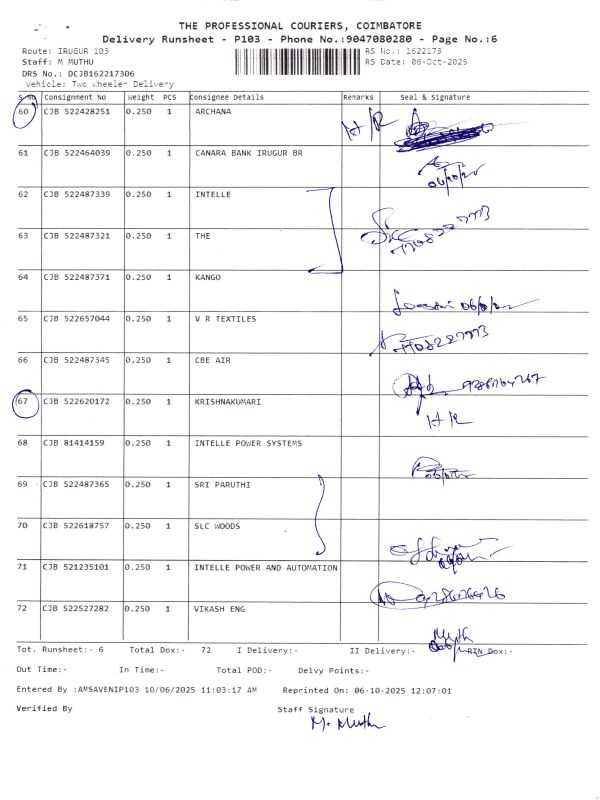 THE PROFESSIONAL COURIERS, COIMBATORE
Delivery Runsheet - P103 - Phone No.:9047080280 - Page No.:6
Route: IRUGUR 103 RS No.: 1622173
Staff: M MUTHU RS Date: 06-Oct-2025
DRS No.: DCJB162217306
Vehicle: Two Wheeler Delivery
S.No Consignment No Weight PCS Consignee Details Remarks Seal & Signature
60 CJB 522428251 0.250 1 ARCHANA H/R
61 CJB 522464039 0.250 1 CANARA BANK IRUGUR BR
06/10/25
62 CJB 522487339 0.250 1 INTELLE
63 CJB 522487321 0.250 1 THE
64 CJB 522487371 0.250 1 KANGO
65 CJB 522657044 0.250 1 V R TEXTILES
66 CJB 522487345 0.250 1 CBE AIR
67 CJB 522620172 0.250 1 KRISHNAKUMARI
H/R
68 CJB 81414159 0.250 1 INTELLE POWER SYSTEMS
69 CJB 522487365 0.250 1 SRI PARUTHI
70 CJB 522618757 0.250 1 SLC WOODS
71 CJB 521235101 0.250 1 INTELLE POWER AND AUTOMATION
72 CJB 522527282 0.250 1 VIKASH ENG
Tot. Runsheet:- 6 Total Dox:- 72 I Delivery:- II Delivery:- RTN Dox:-
Out Time:- In Time:- Total POD:- Delvy Points:-
Entered By :AMSAVENIP103 10/06/2025 11:03:17 AM Reprinted On: 06-10-2025 12:07:01
Verified By Staff Signature
M. Muthu